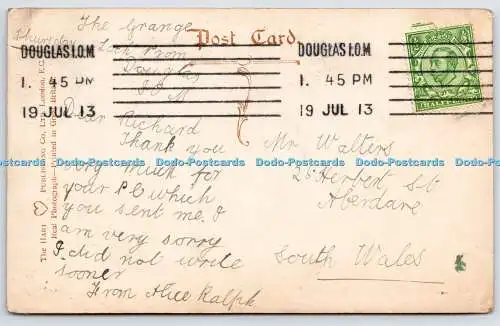 The Grange
Thursday
Post Card
Douglas
I.O.M
DOUGLAS I.O.M.
1. 45 PM
19 JUL 13
DOUGLAS I.O.M.
1. 45 PM
19 JUL 13
Dear Richard
Thank you
very much for
your P C which
you sent me. I
am very sorry
I did not write
sooner
From Alice Ralph
Mr Walters
25 Herbert St
Aberdare
South Wales
THE HART PUBLISHING CO., LTD., LONDON, E.C.
Real Photograph—Printed in Great Britain
HALFPENNY
Dodo-Postcards Dodo-Postcards Dodo-Postcards Dodo-Postcards Dodo-Postcards Dodo-Postcards Dodo-Postcards